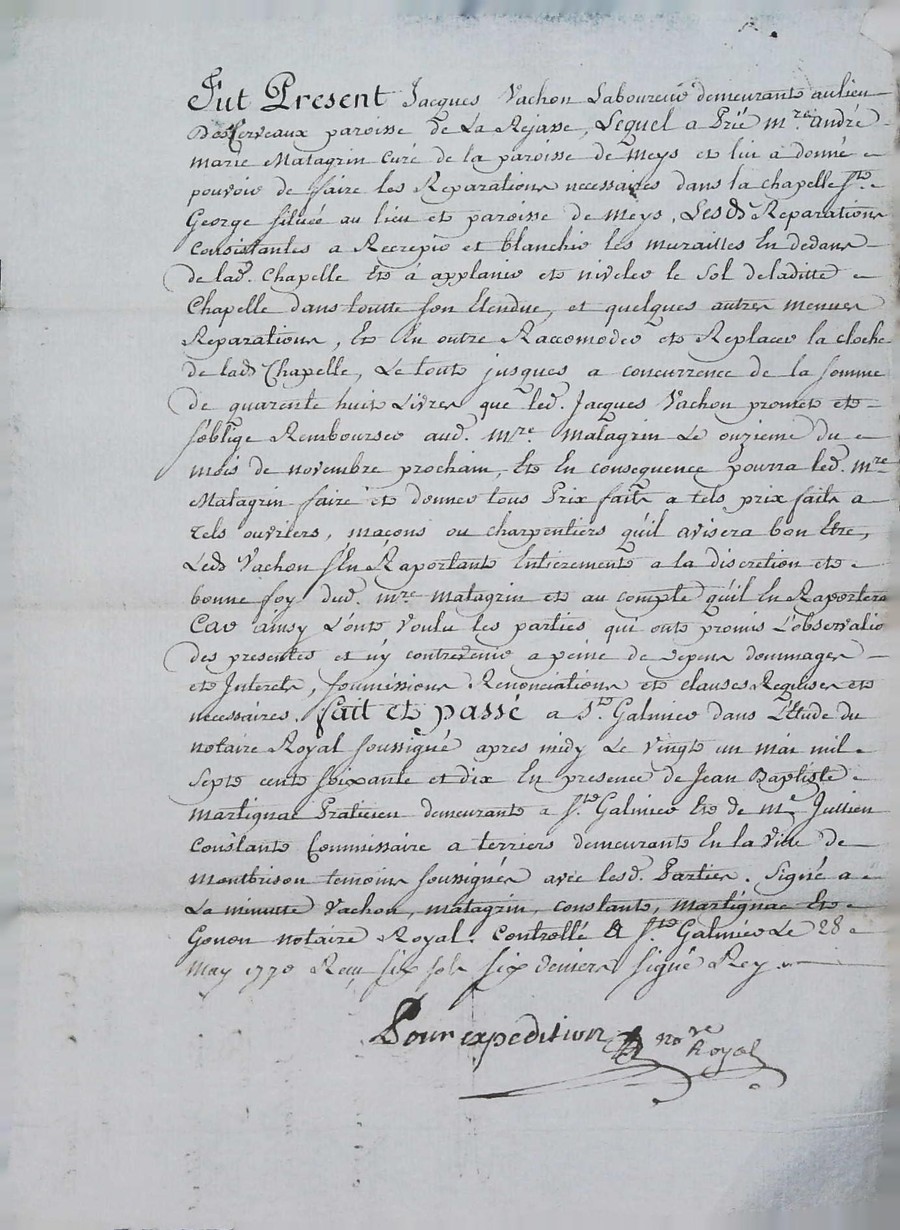 Fut Present Jacques Vachon Laboureur demeurant au lieu
Des Cerveaux paroisse de La Rejasse, Lequel a Prié mre. andré
marie Matagrin curé de la paroisse de Meys et lui a donné
pouvoir de faire les Reparations necessaires dans la chapelle St.
George située au lieu et paroisse de meys, Lesds Reparations
Consistantes a Recrepir et blanchir les murailles En dedans
de lad. Chapelle Et a applanir et niveler le Sol de laditte
Chapelle dans toutte son Etendue, et quelques autres menues
Reparations, Et En outre Raccomoder et Replacer la cloche
de lad Chapelle, Le tout jusques a concurrence de la somme
de quarente huit Livres que led. Jacques Vachon promet et
s'oblige Rembourser aud. mre. Matagrin Le onzieme du
mois de novembre prochain, Et En consequence pourra led. mre
Matagrin faire et donner tous Prix faits a tels prix faits a
tels ouvriers, maçons ou charpentiers qu'il avisera bon Etre,
Led Vachon s'En Raportant Entierement a la discretion et
bonne foy dud. mre matagrin et au compte qu'il En Raportera
Car ainsy L'ont voulu les parties qui ont promis L'observatio
des presentes et n'y contrevenir a peine de depens dommages
et Interets, soumissions Renonciations et clauses Requises et
necessaires. fait et passé a St. Galmier dans L'Etude du
notaire Royal soussigné apres midy Le vingt un mai mil
Sept cent soixante et dix En presence de Jean Baptiste
Martignac Praticien demeurant a St. Galmier Et de me Jullien
Constant Commissaire a terriers demeurant En la Ville de
Montbrison temoins soussignés avec lesd. Parties. Signé a
La minutte Vachon, matagrin, constant, Martignac Et
Gonon notaire Royal. Controllé A St. Galmier Le 28
May 1770 Reçu six sols six deniers signé Rey
Pour expedition
nore Royal